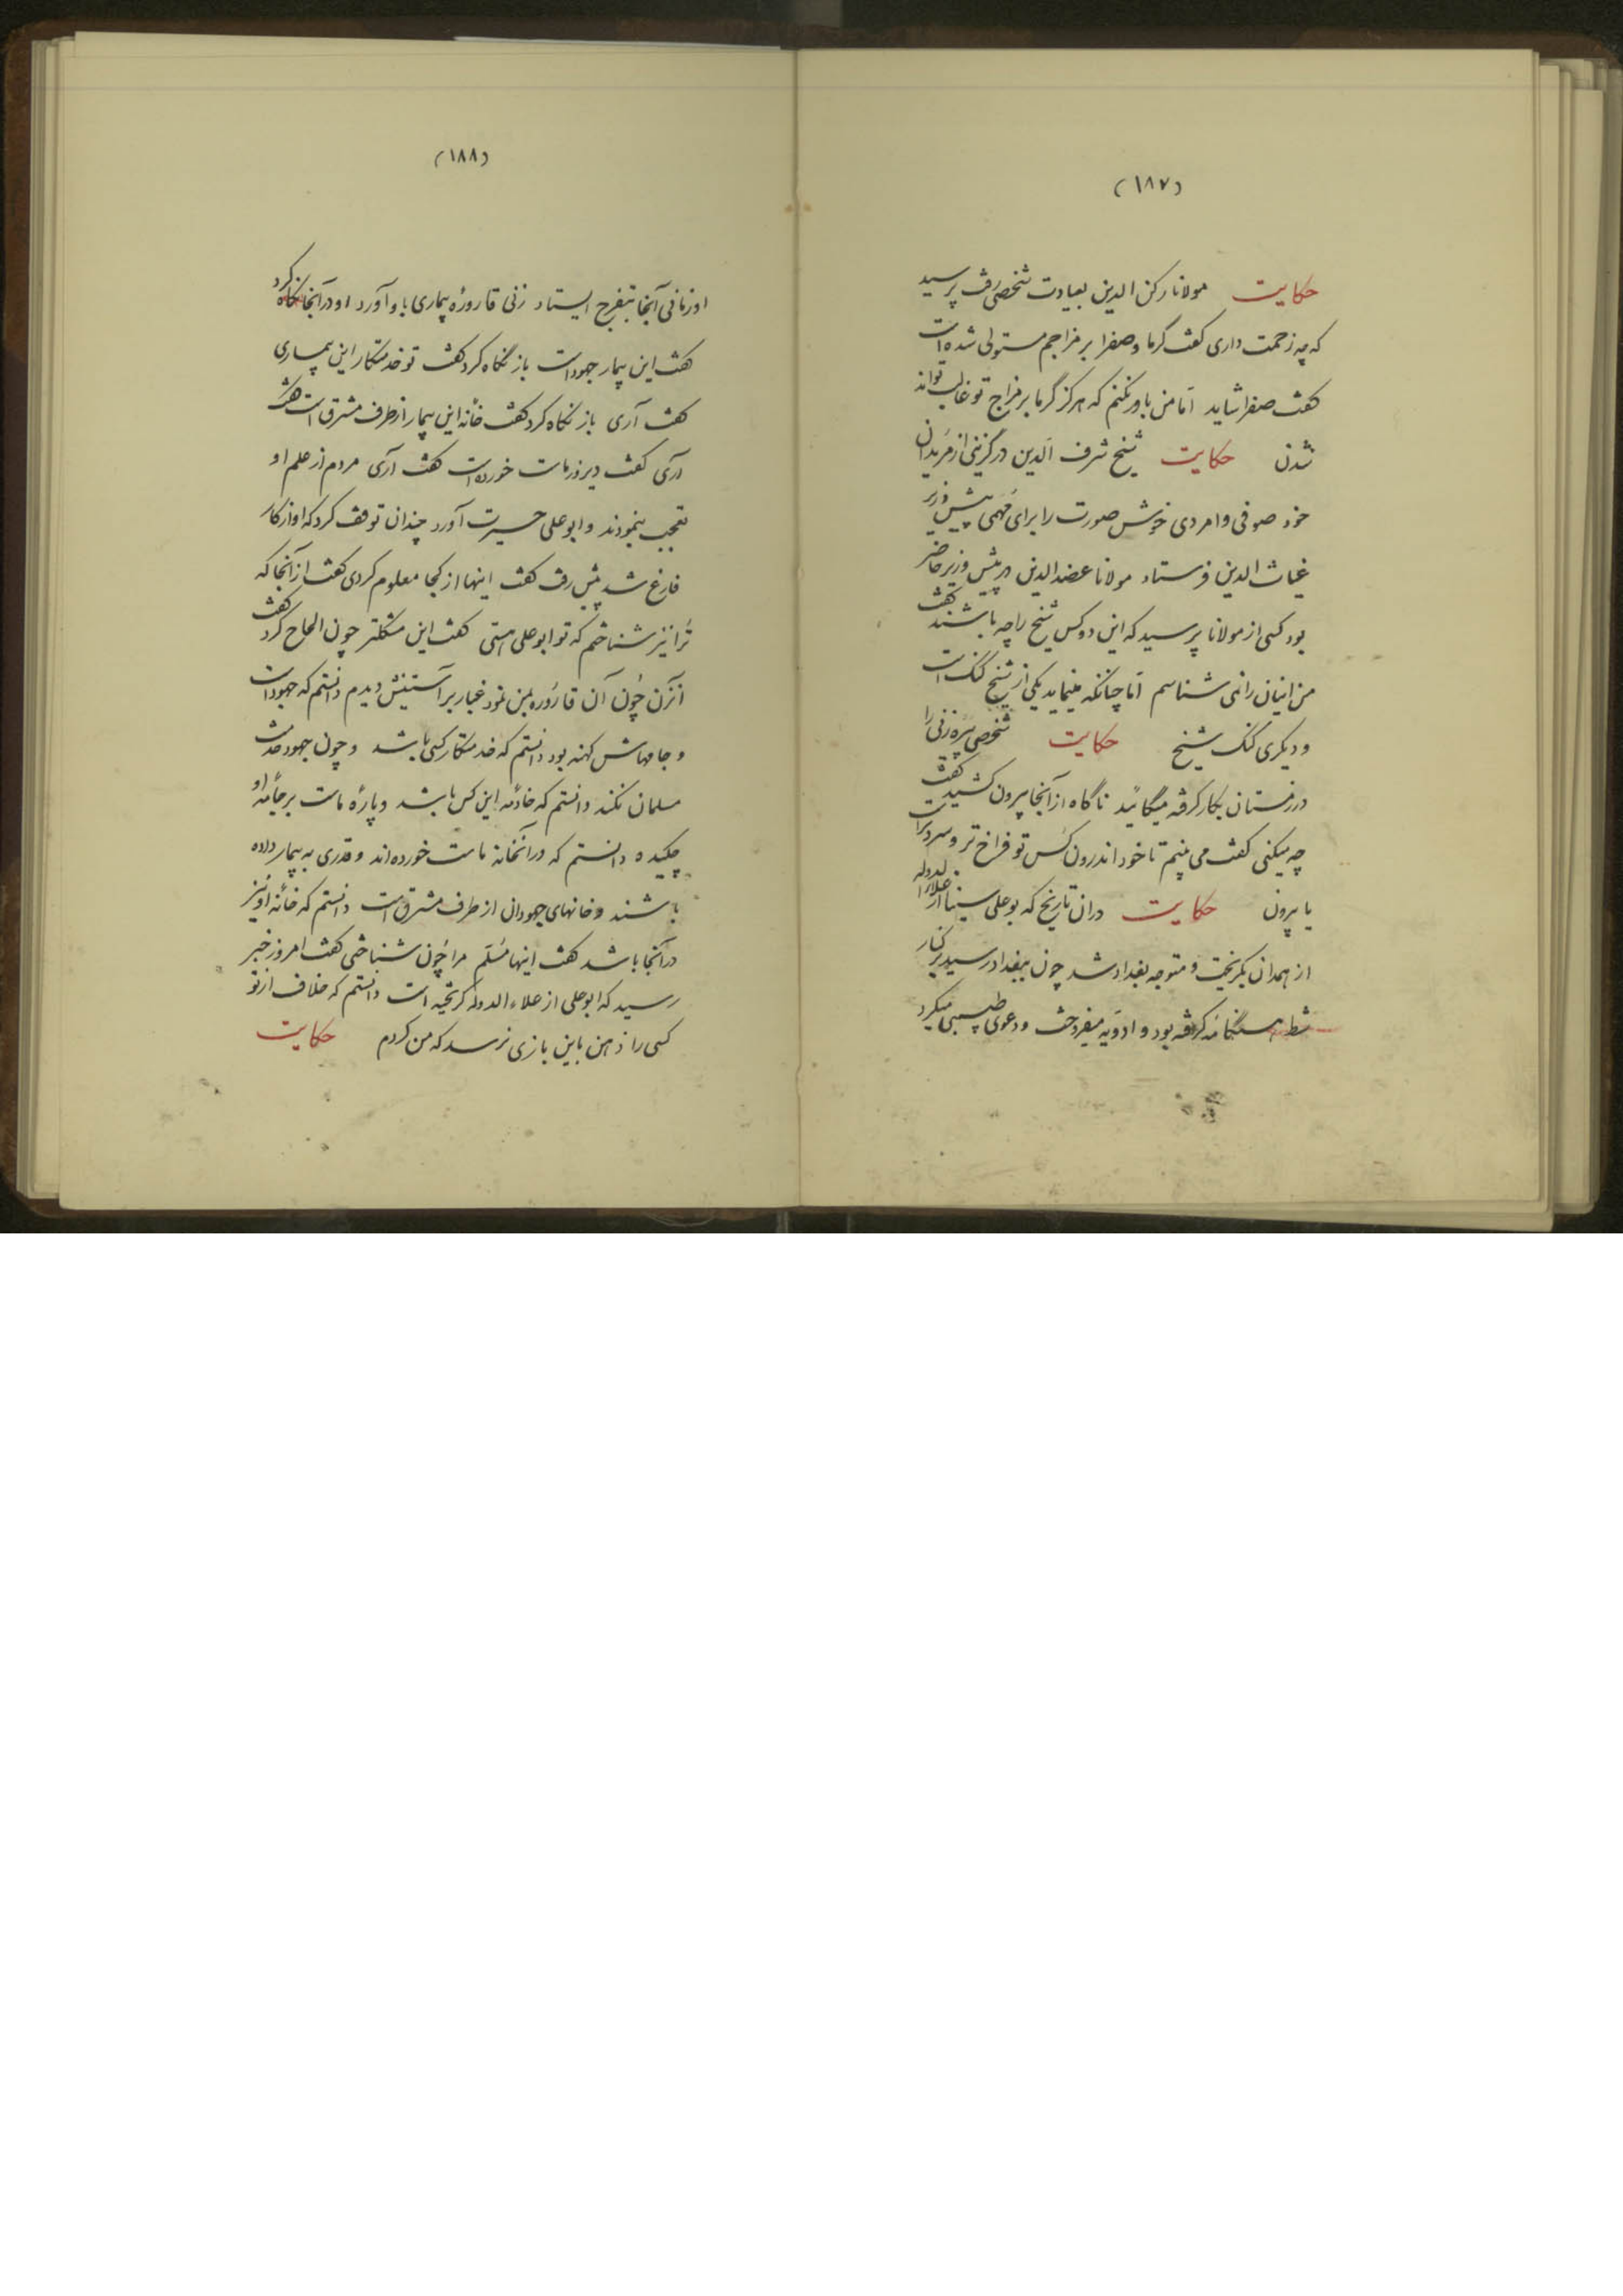 (۱۸۷)
حکایت مولانا رکن الدین بعیادت شخصی رفت پرسید
که چه زحمت داری کفت کرما و صفرا بر مزاجم مستولی شده است
کفت صفرا شاید اما من باور نکنم که هرکز گرما بر مزاج تو غالب تواند
شدن حکایت شیخ شرف الدین درگزینی از مریدان
خود صوفی و امردی خوش صورت را برای مهمی پیش وزیر
غیاث الدین فرستاد مولانا عضد الدین در پیش وزیر حاضر
بود کسی از مولانا پرسید که این دو کس شیخ را چه باشند کفت
من اینان را نمی شناسم اما چنانکه مینماید یکی از شیخ کنک است
و دیکری کنک شیخ حکایت شخصی پیره زنی را
در زمستان بکار کرفته میگائید ناگاه از آنجا بیرون کشید کفت
چه میکنی کفت می بینم تا خود اندرون کس تو فراخ تر و سردتر است
یا بیرون حکایت دران تاریخ که بوعلی سینا از علاء الدوله
از همدان بکریخت و متوجه بغداد شد چون ببغداد رسید بر کنار
شط هنکامه کرفته بود و ادویه میفروخت و دعوی طبیبی میکرد
(۱۸۸)
او زمانی آنجا بتفرج ایستاد زنی قاروره بیماری باو آورد او در آنجا نکاه کرد
کفت این بیمار جهود است باز نگاه کرد کفت تو خدمتکار این بیماری
کفت آری باز نکاه کرد کفت خانه این بیمار از طرف مشرق است کفت
آری کفت دیروز ماست خورده است کفت آری مردم از علم او
تعجب بنمودند و ابوعلی حیرت آورد چندان توقف کرد که او از کار
فارغ شد پیش رفت کفت اینها از کجا معلوم کردی کفت از آنجا که
ترا نیز شناختم که تو ابوعلی هستی کفت این مشکلتر چون الحاح کرد کفت
آنزن چون آن قاروره بمن نمود غبار بر آستینش دیدم دانستم که جهود است
و جامهاش کهنه بود دانستم که خدمتکار کسی باشد و چون جهود خدمت
مسلمان نکند دانستم که خادمه این کس باشد و پاره ماست بر جامه او
چکیده دانستم که در آنخانه ماست خورده اند و قدری به بیمار داده
باشند و خانهای جهودان از طرف مشرق است دانستم که خانه او نیز
در آنجا باشد کفت اینها مسلم مرا چون شناختی کفت امروز خبر
رسید که ابوعلی از علاء الدوله کریخته است دانستم که خلاف از تو
کسی را ذهن باین بازی نرسد که من کردم حکایت